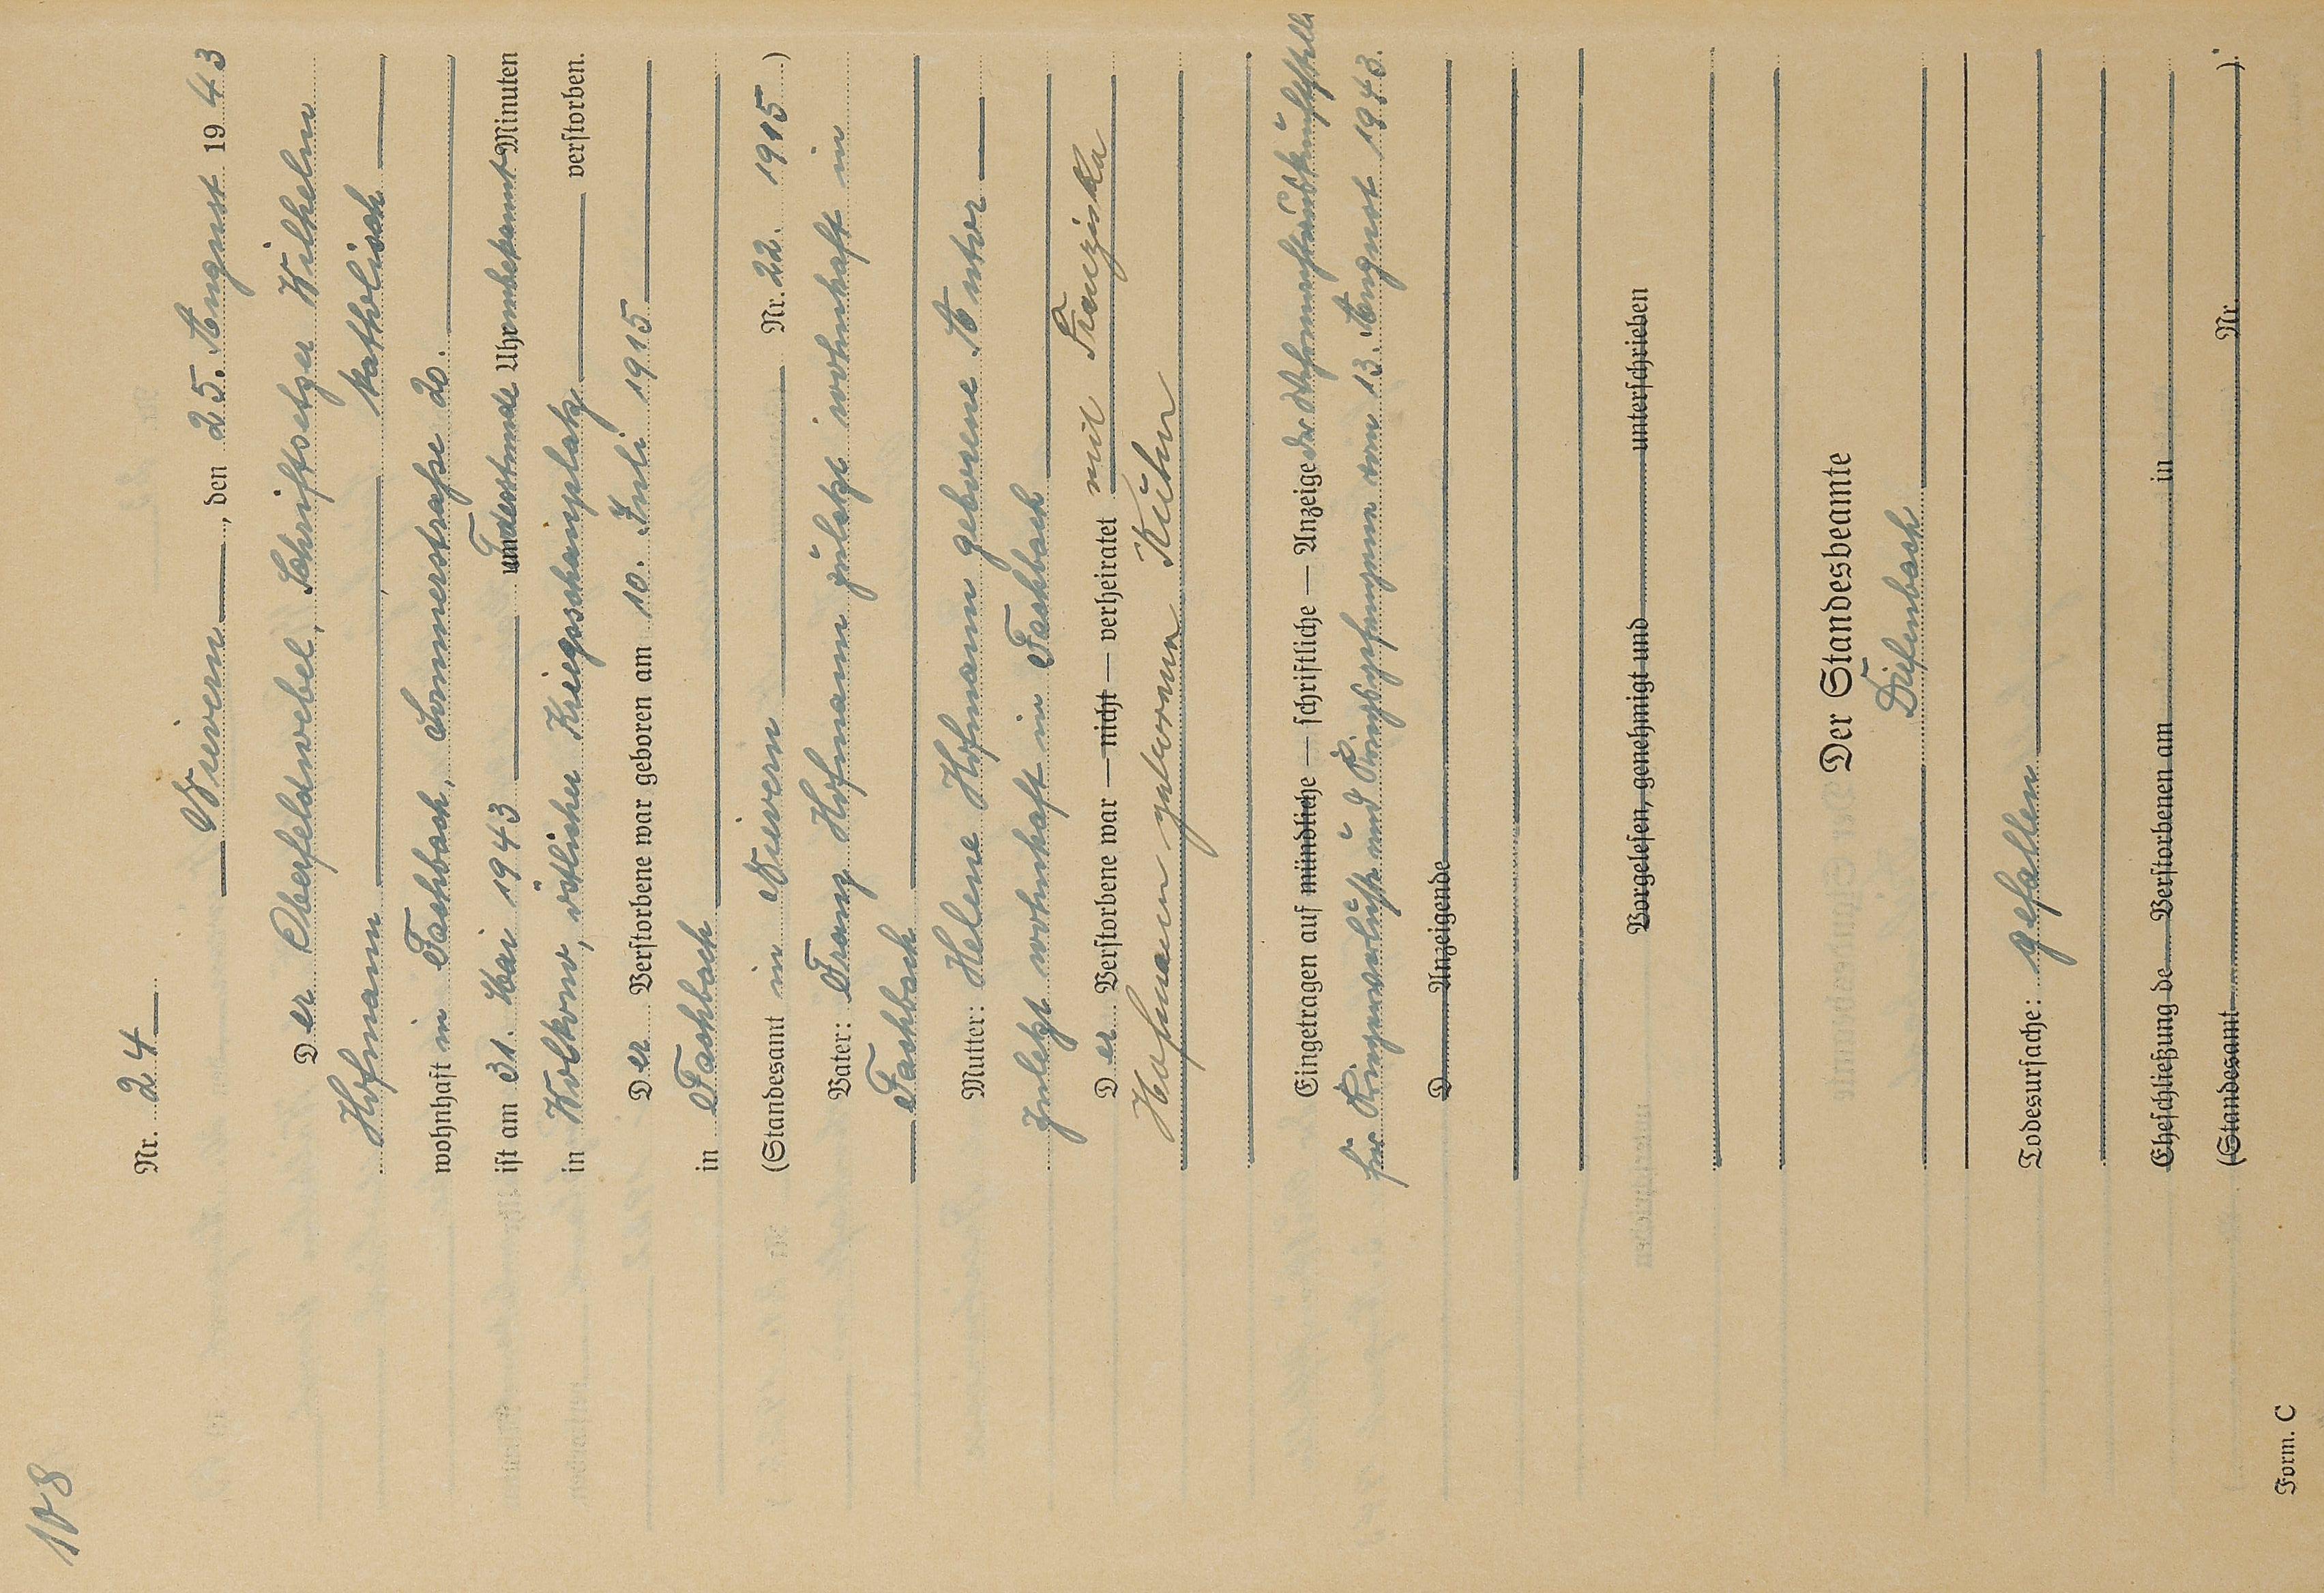 108
Nr. 24
Nievern, den 25. August 1943
Der Oberfeldwebel, Schriftsetzer Wilhelm
Hofmann, katholisch
wohnhaft in Fachbach, Sommerstraße 20.
ist am 31. Mai 1943 um Todesstunde Uhr unbekannt Minuten
in Wolkowo, östlicher Kriegsschauplatz verstorben.
Der Verstorbene war geboren am 10. Juli 1915
in Fachbach
(Standesamt in Nievern Nr. 22. 1915)
Vater: Franz Hofmann zuletzt wohnhaft in
Fachbach
Mutter: Helene Hofmann geborene
zuletzt wohnhaft in Fachbach
Der Verstorbene war — nicht — verheiratet mit Franziska
Hofmann geborenen Kühn
Eingetragen auf mündliche — schriftliche — Anzeige der Wehrmachtauskunftstelle
für Kriegerverluste und Kriegsgefangene vom 13. August 1943.
D Anzeigende
Vorgelesen, genehmigt und unterschrieben
Der Standesbeamte
Diefenbach
Todesursache: gefallen
Eheschließung de Verstorbenen am in
(Standesamt Nr. ).
Form. C